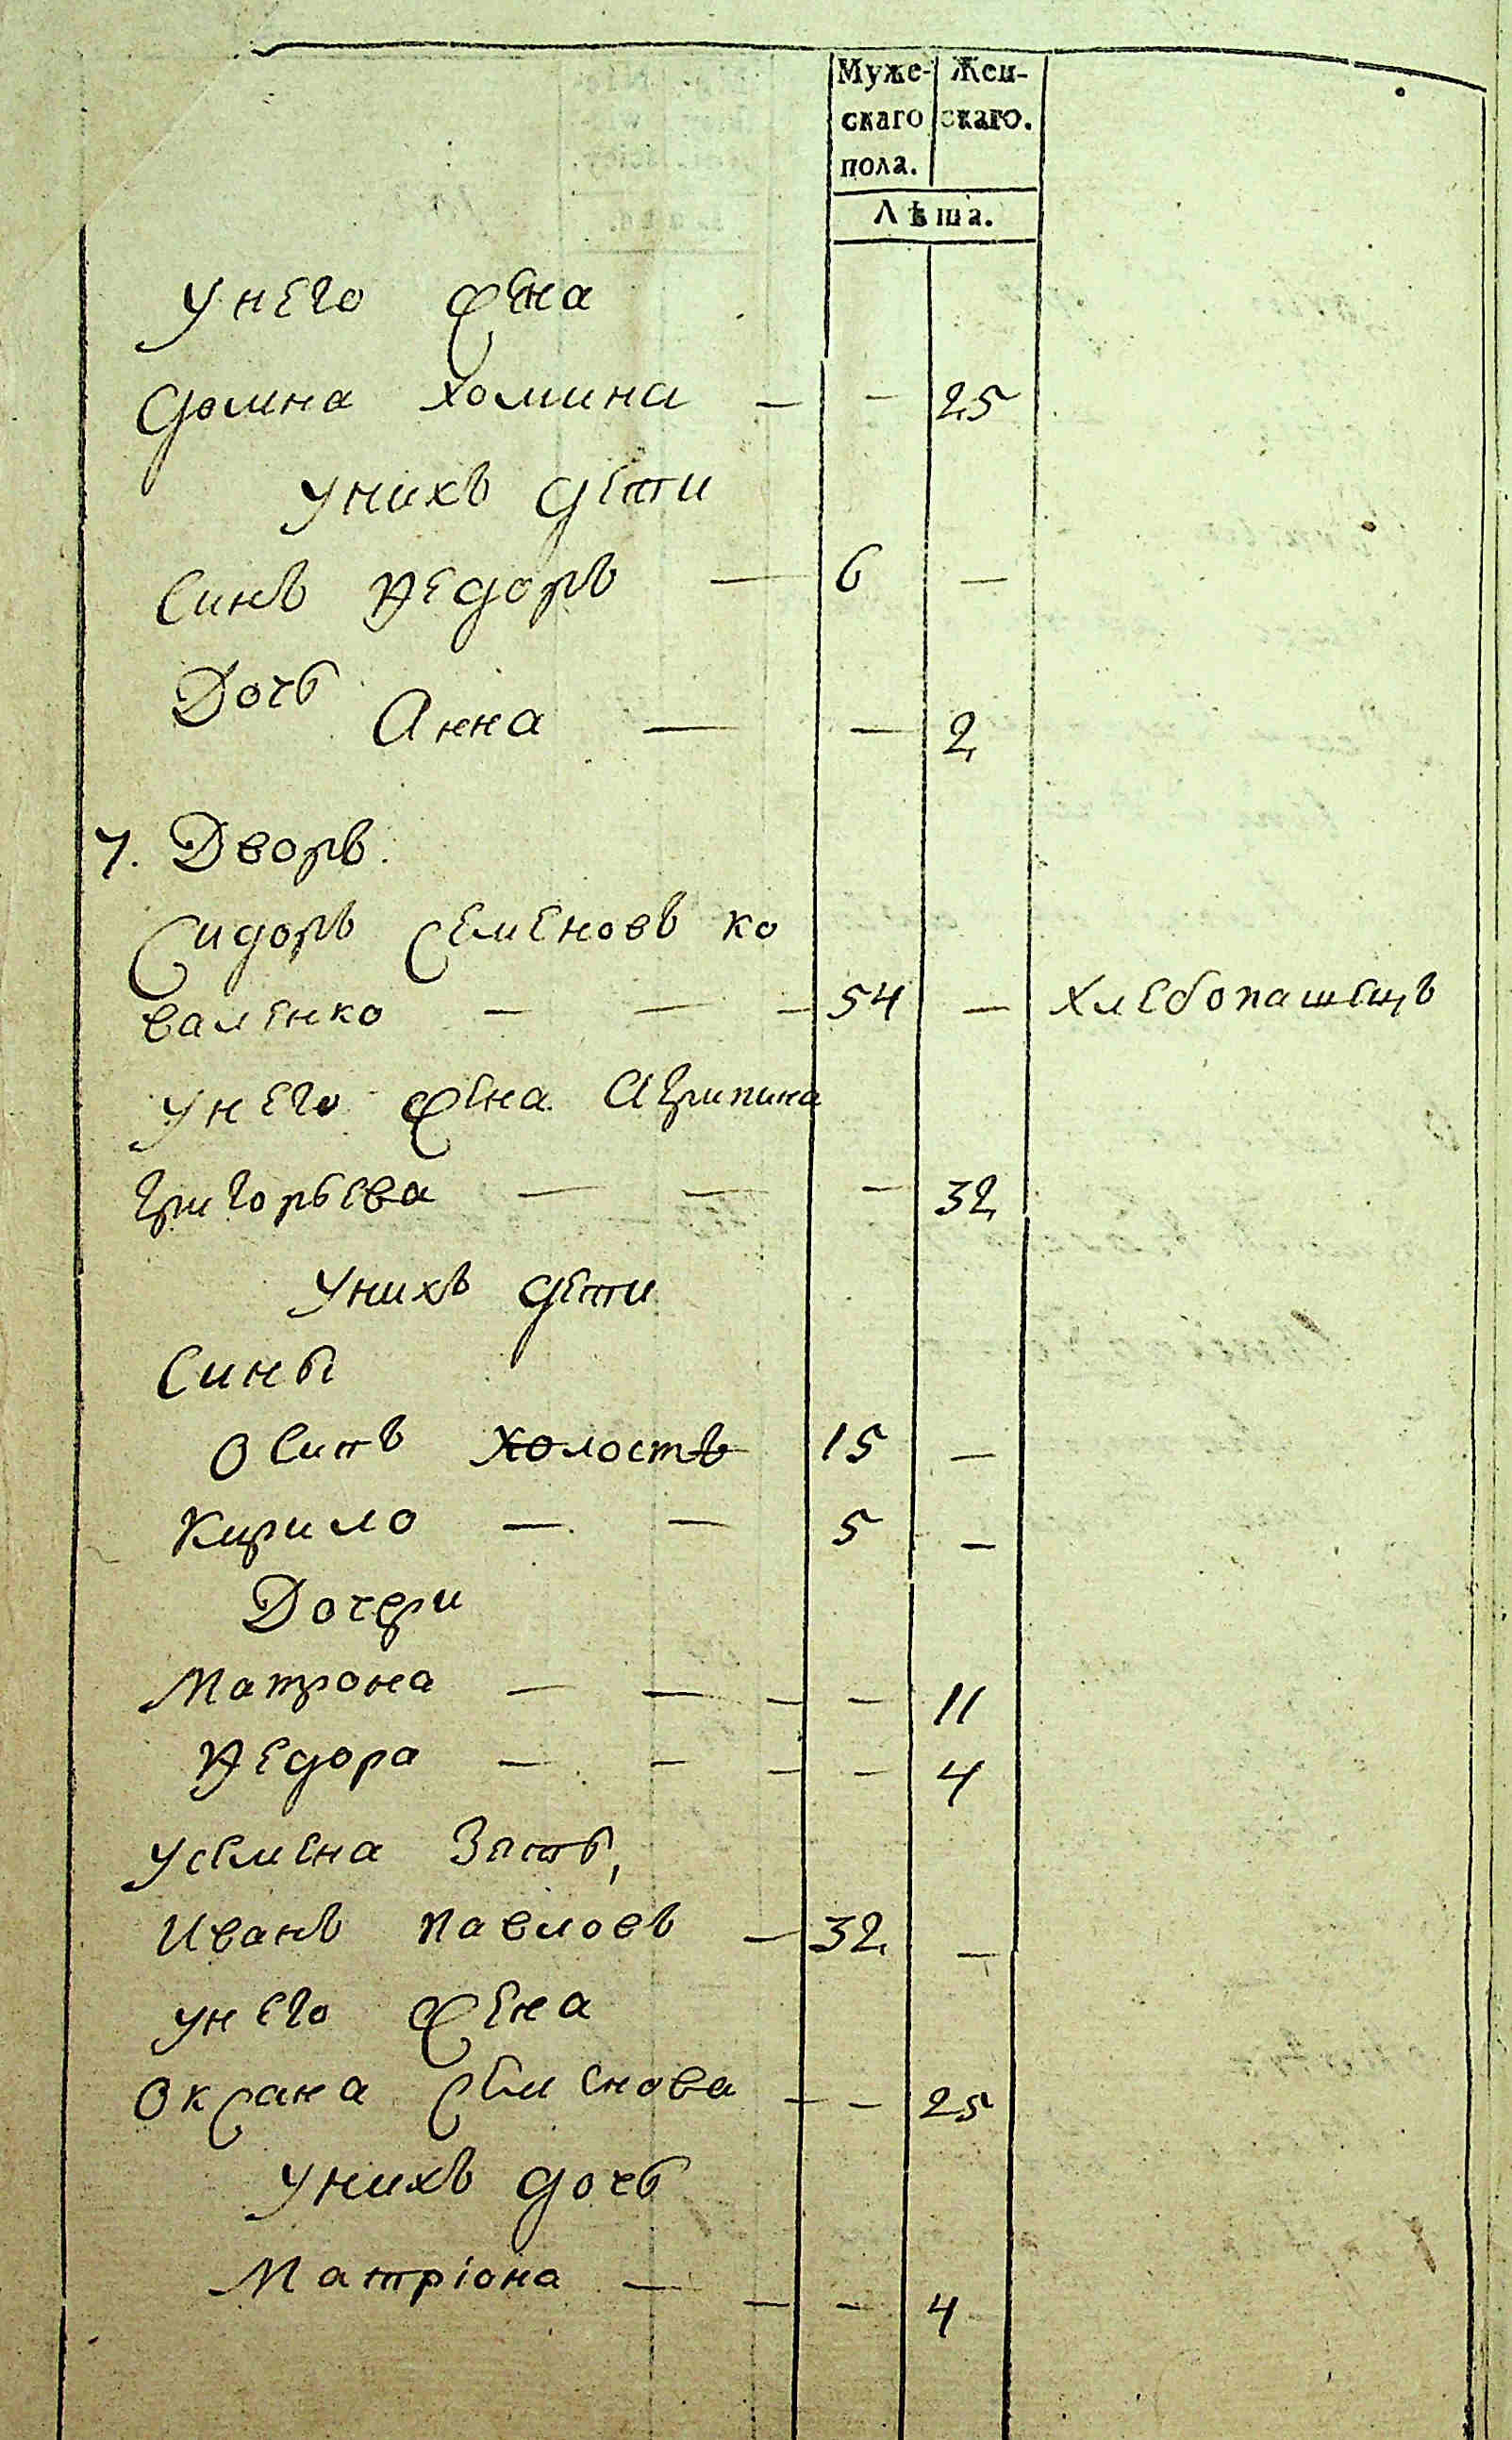 Муже- Жен-
скаго скаго.
пола.
Лѣта.
унего жена
домна хомина — — 25
унихъ дети
Синъ Федоръ — 6 —
Дочь Анна — — 2
7. Дворъ.
Сидоръ Семеновъ ко
валенко — — — 54 — хлебопашецъ
унего жена Агрипина
григорьева — — — 32
унихъ дети
Сины
Осипъ холостъ 15 —
Кирило — — 5 —
Дочери
Матрона — — — — 11
Федора — — — — 4
усемена Зять,
Иванъ павловъ — 32 —
унего жена
Оксана Семенова — — 25
унихъ дочь
Матріона — — — 4